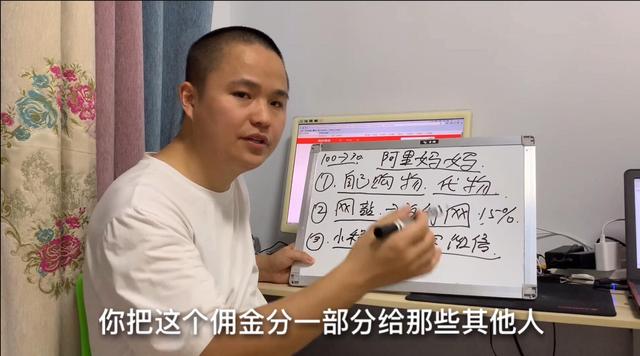 100→70 阿里妈妈
①.自己购物.代购
② 网站 网 15%
③.小程 微信
你把这个佣金分一部分给那些其他人